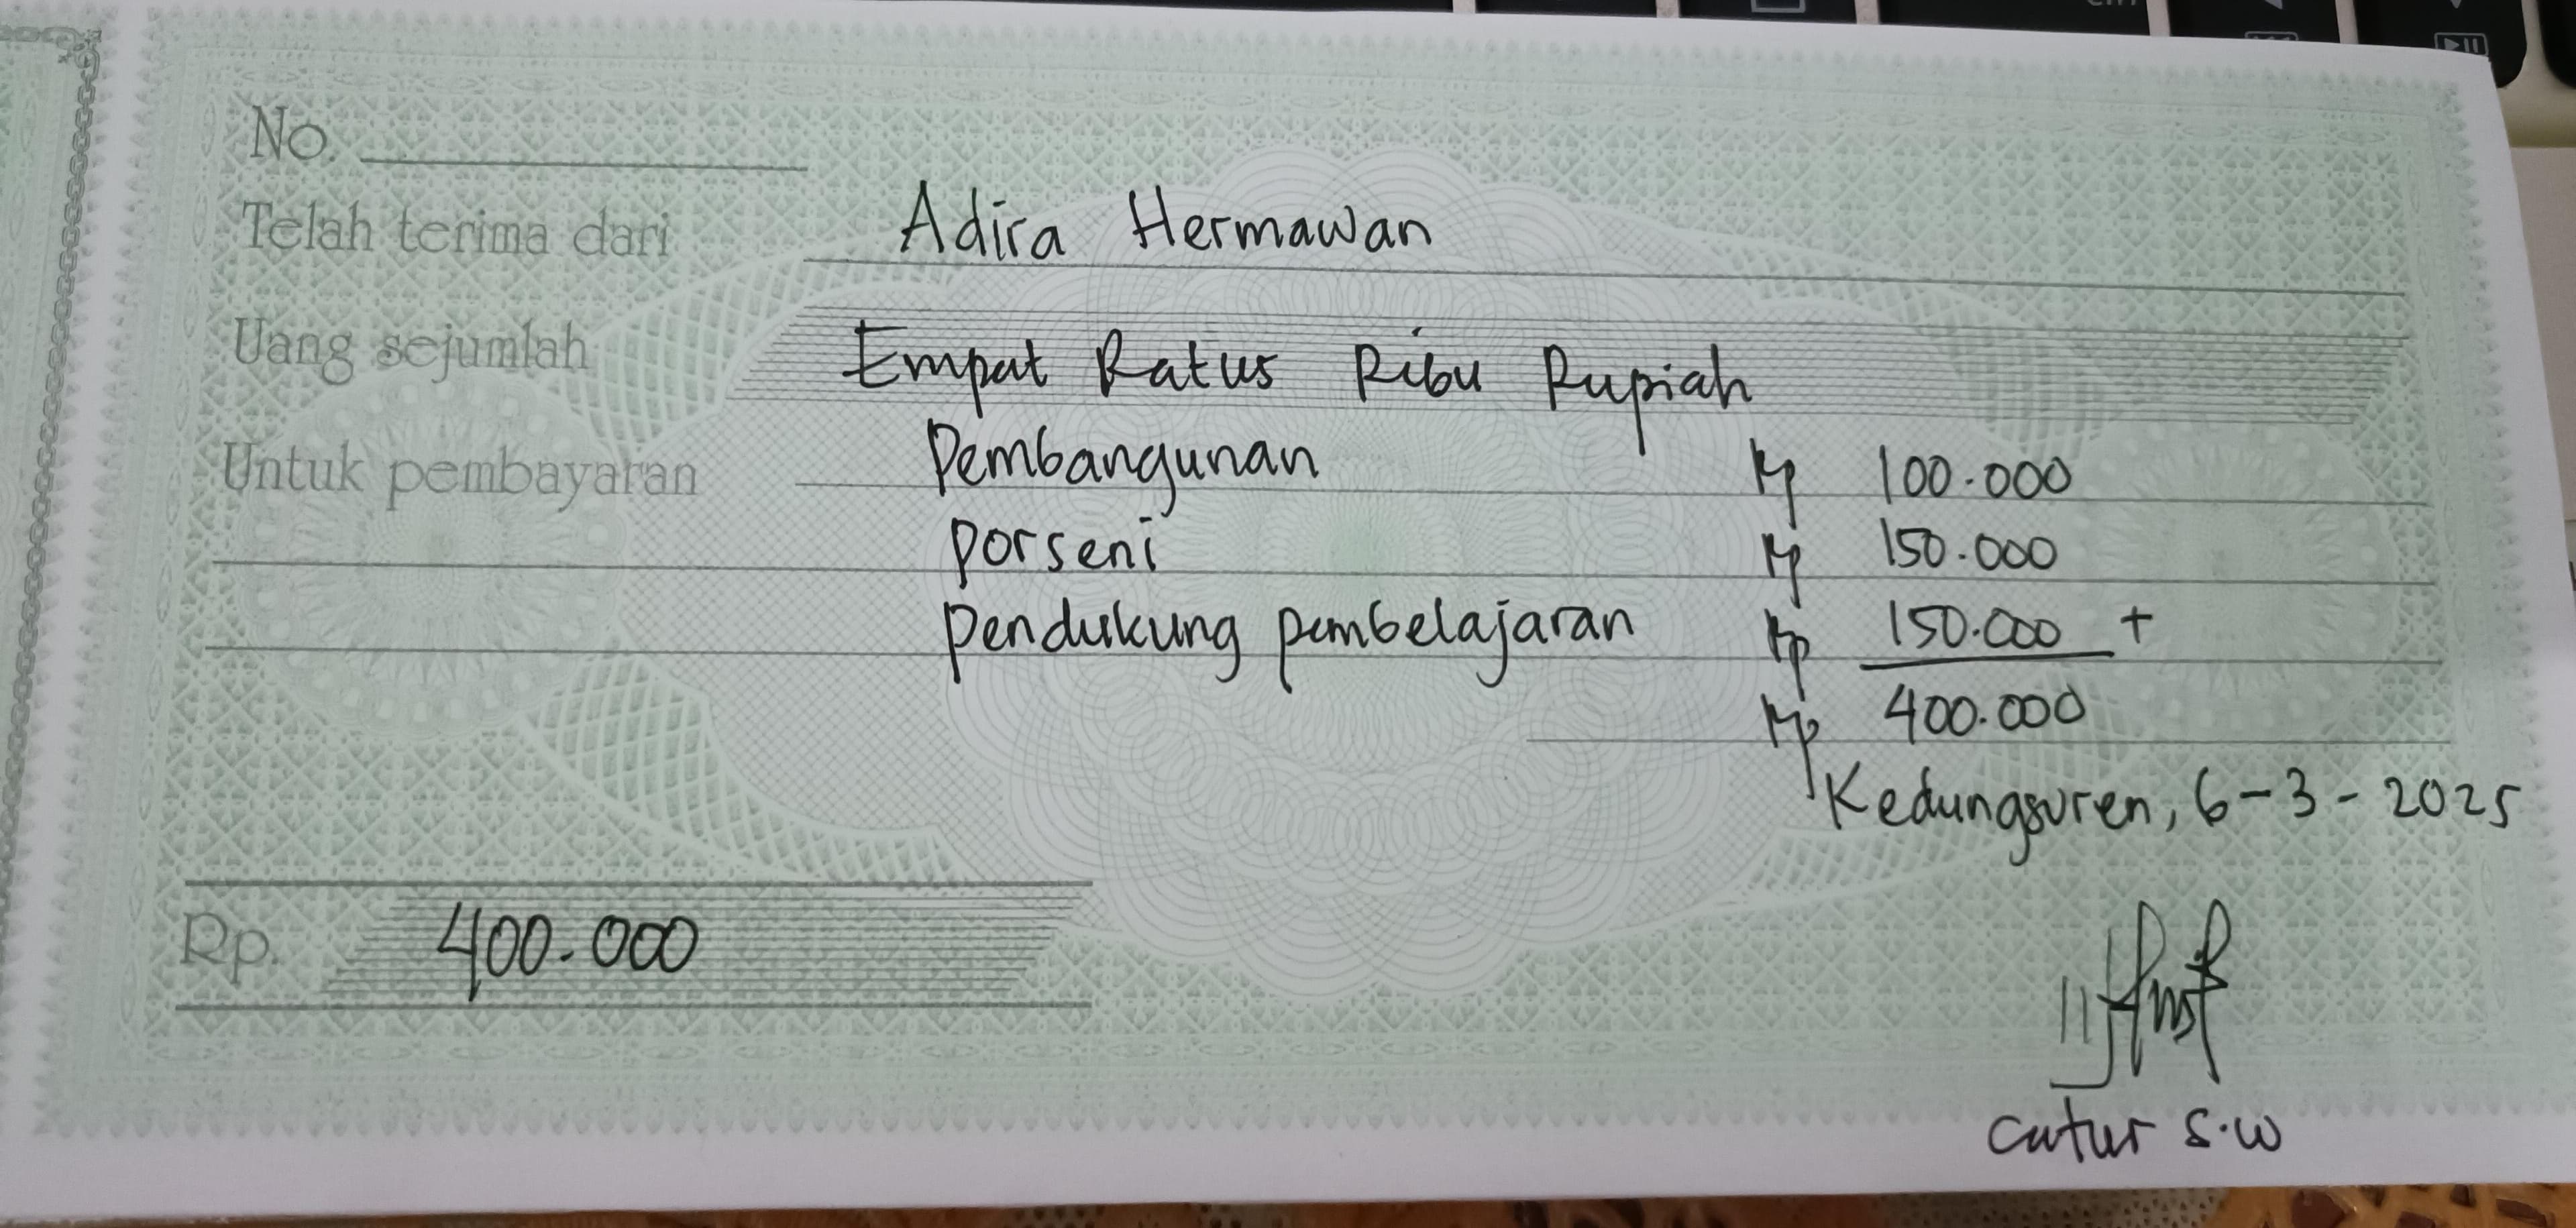 No.
Telah terima dari Adira Hermawan
Uang sejumlah Empat Ratus Ribu Rupiah
Untuk pembayaran Pembangunan Rp 100.000
porseni Rp 150.000
pendukung pembelajaran Rp 150.000 +
Rp 400.000
Kedungsuren, 6-3-2025
Rp. 400.000
catur S.W